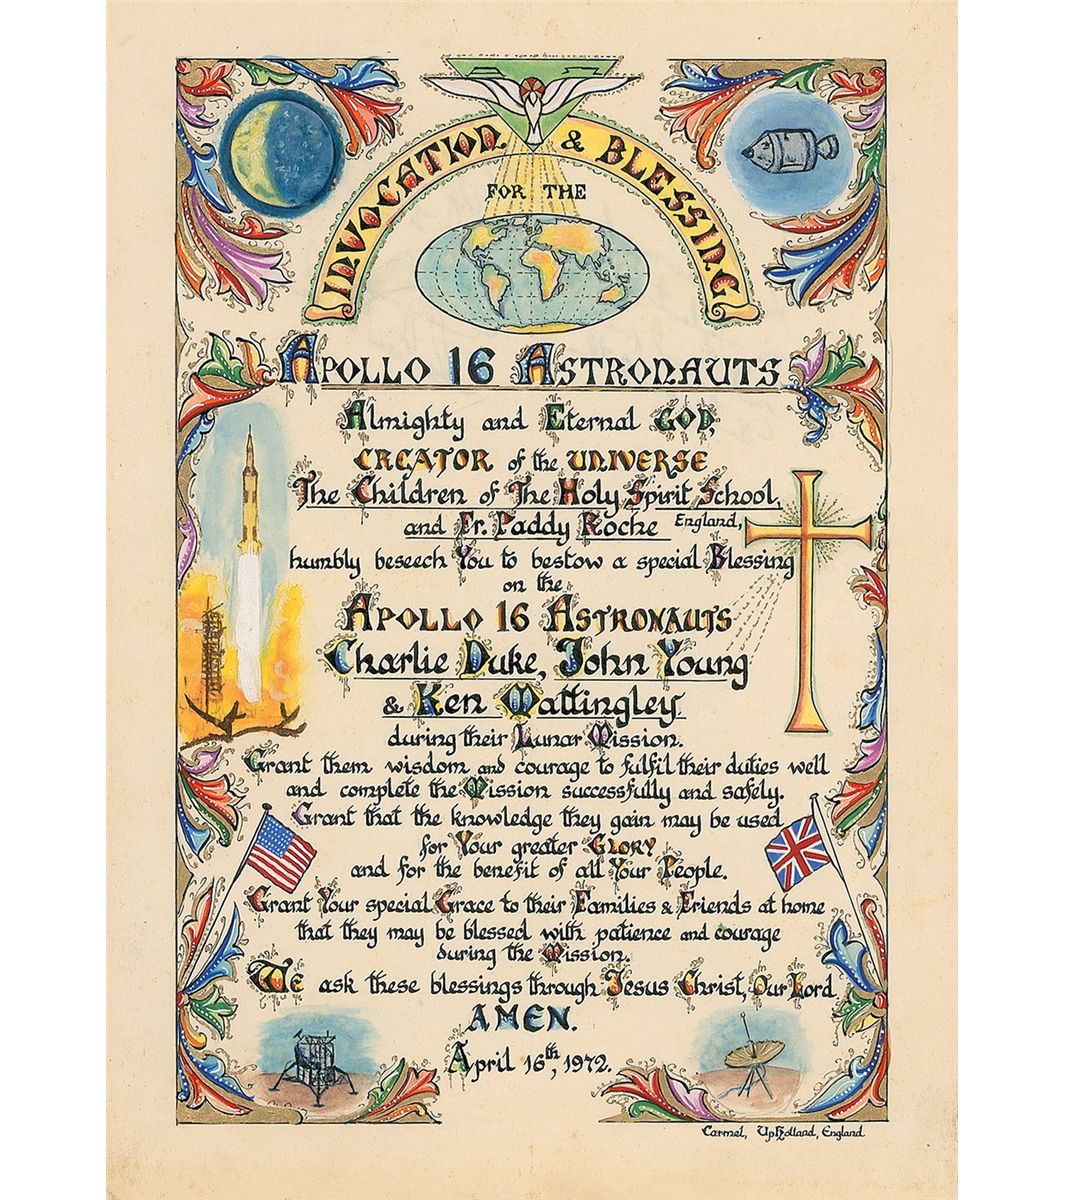 INVOCATION & BLESSING
FOR THE
APOLLO 16 ASTRONAUTS
Almighty and Eternal GOD,
CREATOR of the UNIVERSE
The Children of The Holy Spirit School,
and Fr. Paddy Roche England,
humbly beseech You to bestow a special Blessing
on the
APOLLO 16 ASTRONAUTS
Charlie Duke, John Young
& Ken Mattingley
during their Lunar Mission.
Grant them wisdom and courage to fulfil their duties well
and complete the Mission successfully and safely.
Grant that the knowledge they gain may be used
for Your greater GLORY
and for the benefit of all Your People.
Grant Your special Grace to their Families & Friends at home
that they may be blessed with patience and courage
during the Mission.
We ask these blessings through Jesus Christ, Our Lord
AMEN.
April 16th, 1972.
Carmel, UpHolland, England